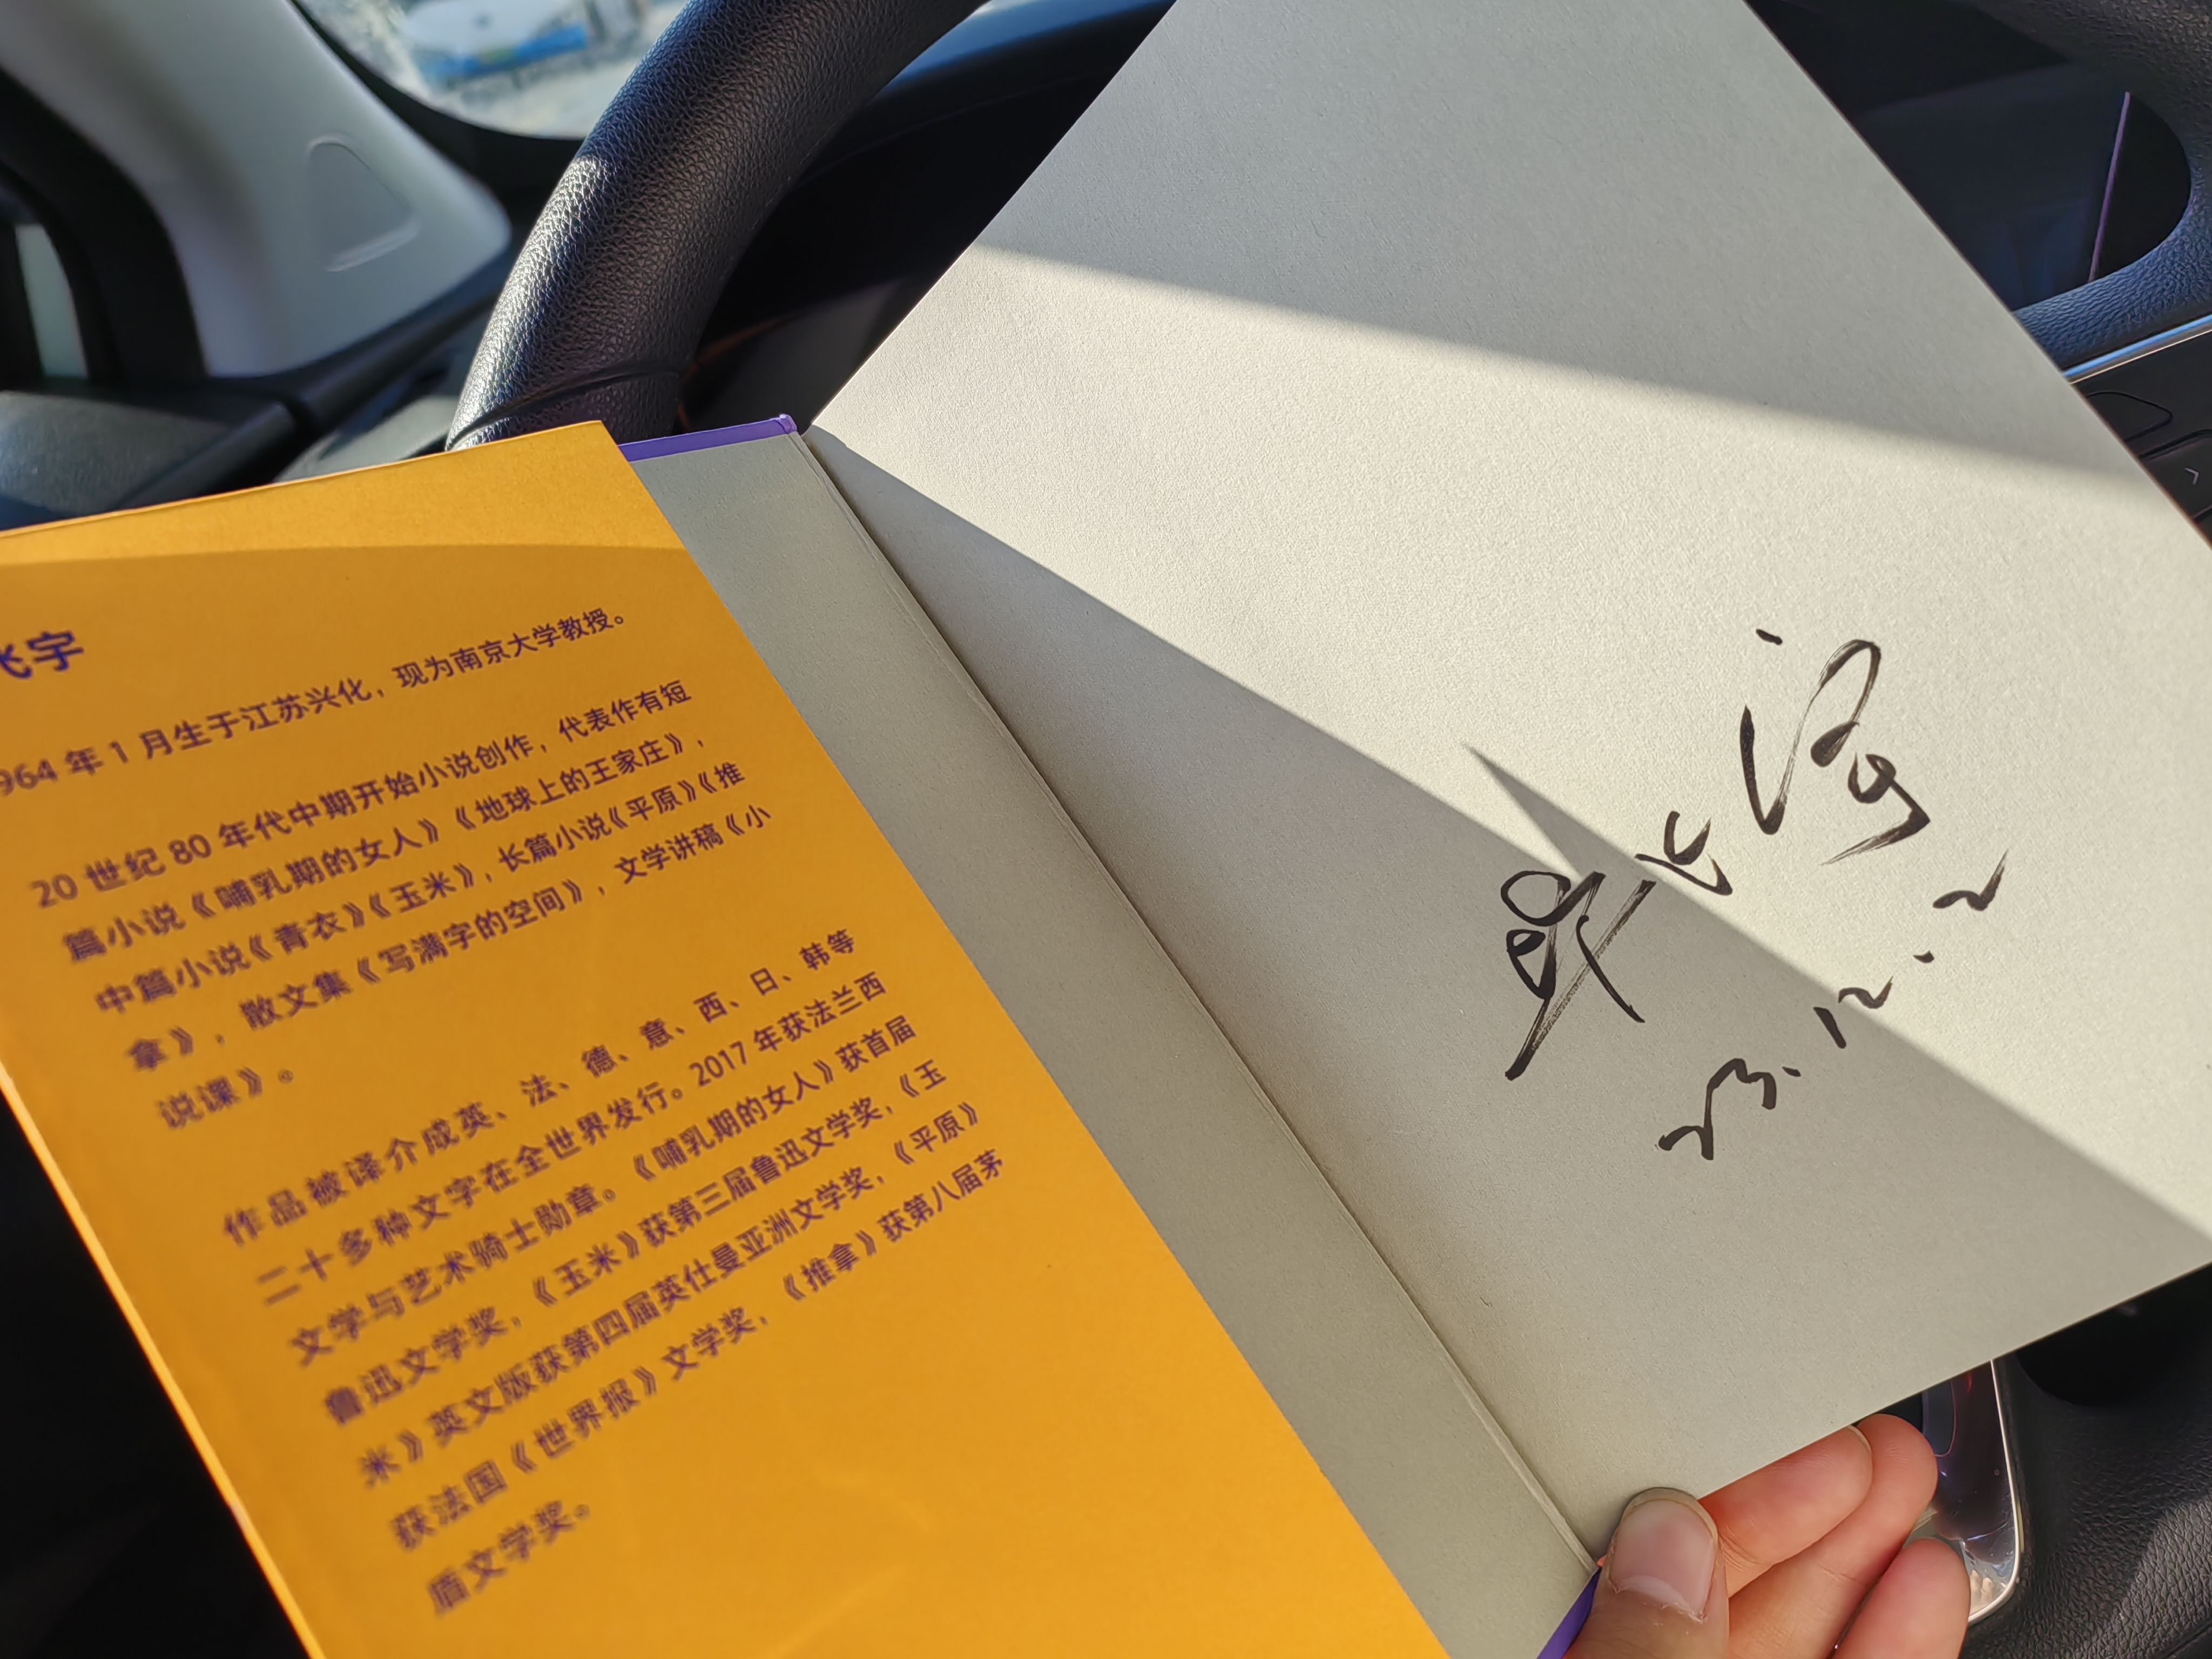 飞宇
964 年 1 月生于江苏兴化，现为南京大学教授。
20 世纪 80 年代中期开始小说创作，代表作有短
篇小说《哺乳期的女人》《地球上的王家庄》，
中篇小说《青衣》《玉米》，长篇小说《平原》《推
拿》，散文集《写满字的空间》，文学讲稿《小
说课》。
作品被译介成英、法、德、意、西、日、韩等
二十多种文字在全世界发行。2017 年获法兰西
文学与艺术骑士勋章。《哺乳期的女人》获首届
鲁迅文学奖，《玉米》获第三届鲁迅文学奖，《玉
米》英文版获第四届英仕曼亚洲文学奖，《平原》
获法国《世界报》文学奖，《推拿》获第八届茅
盾文学奖。
23.12.2